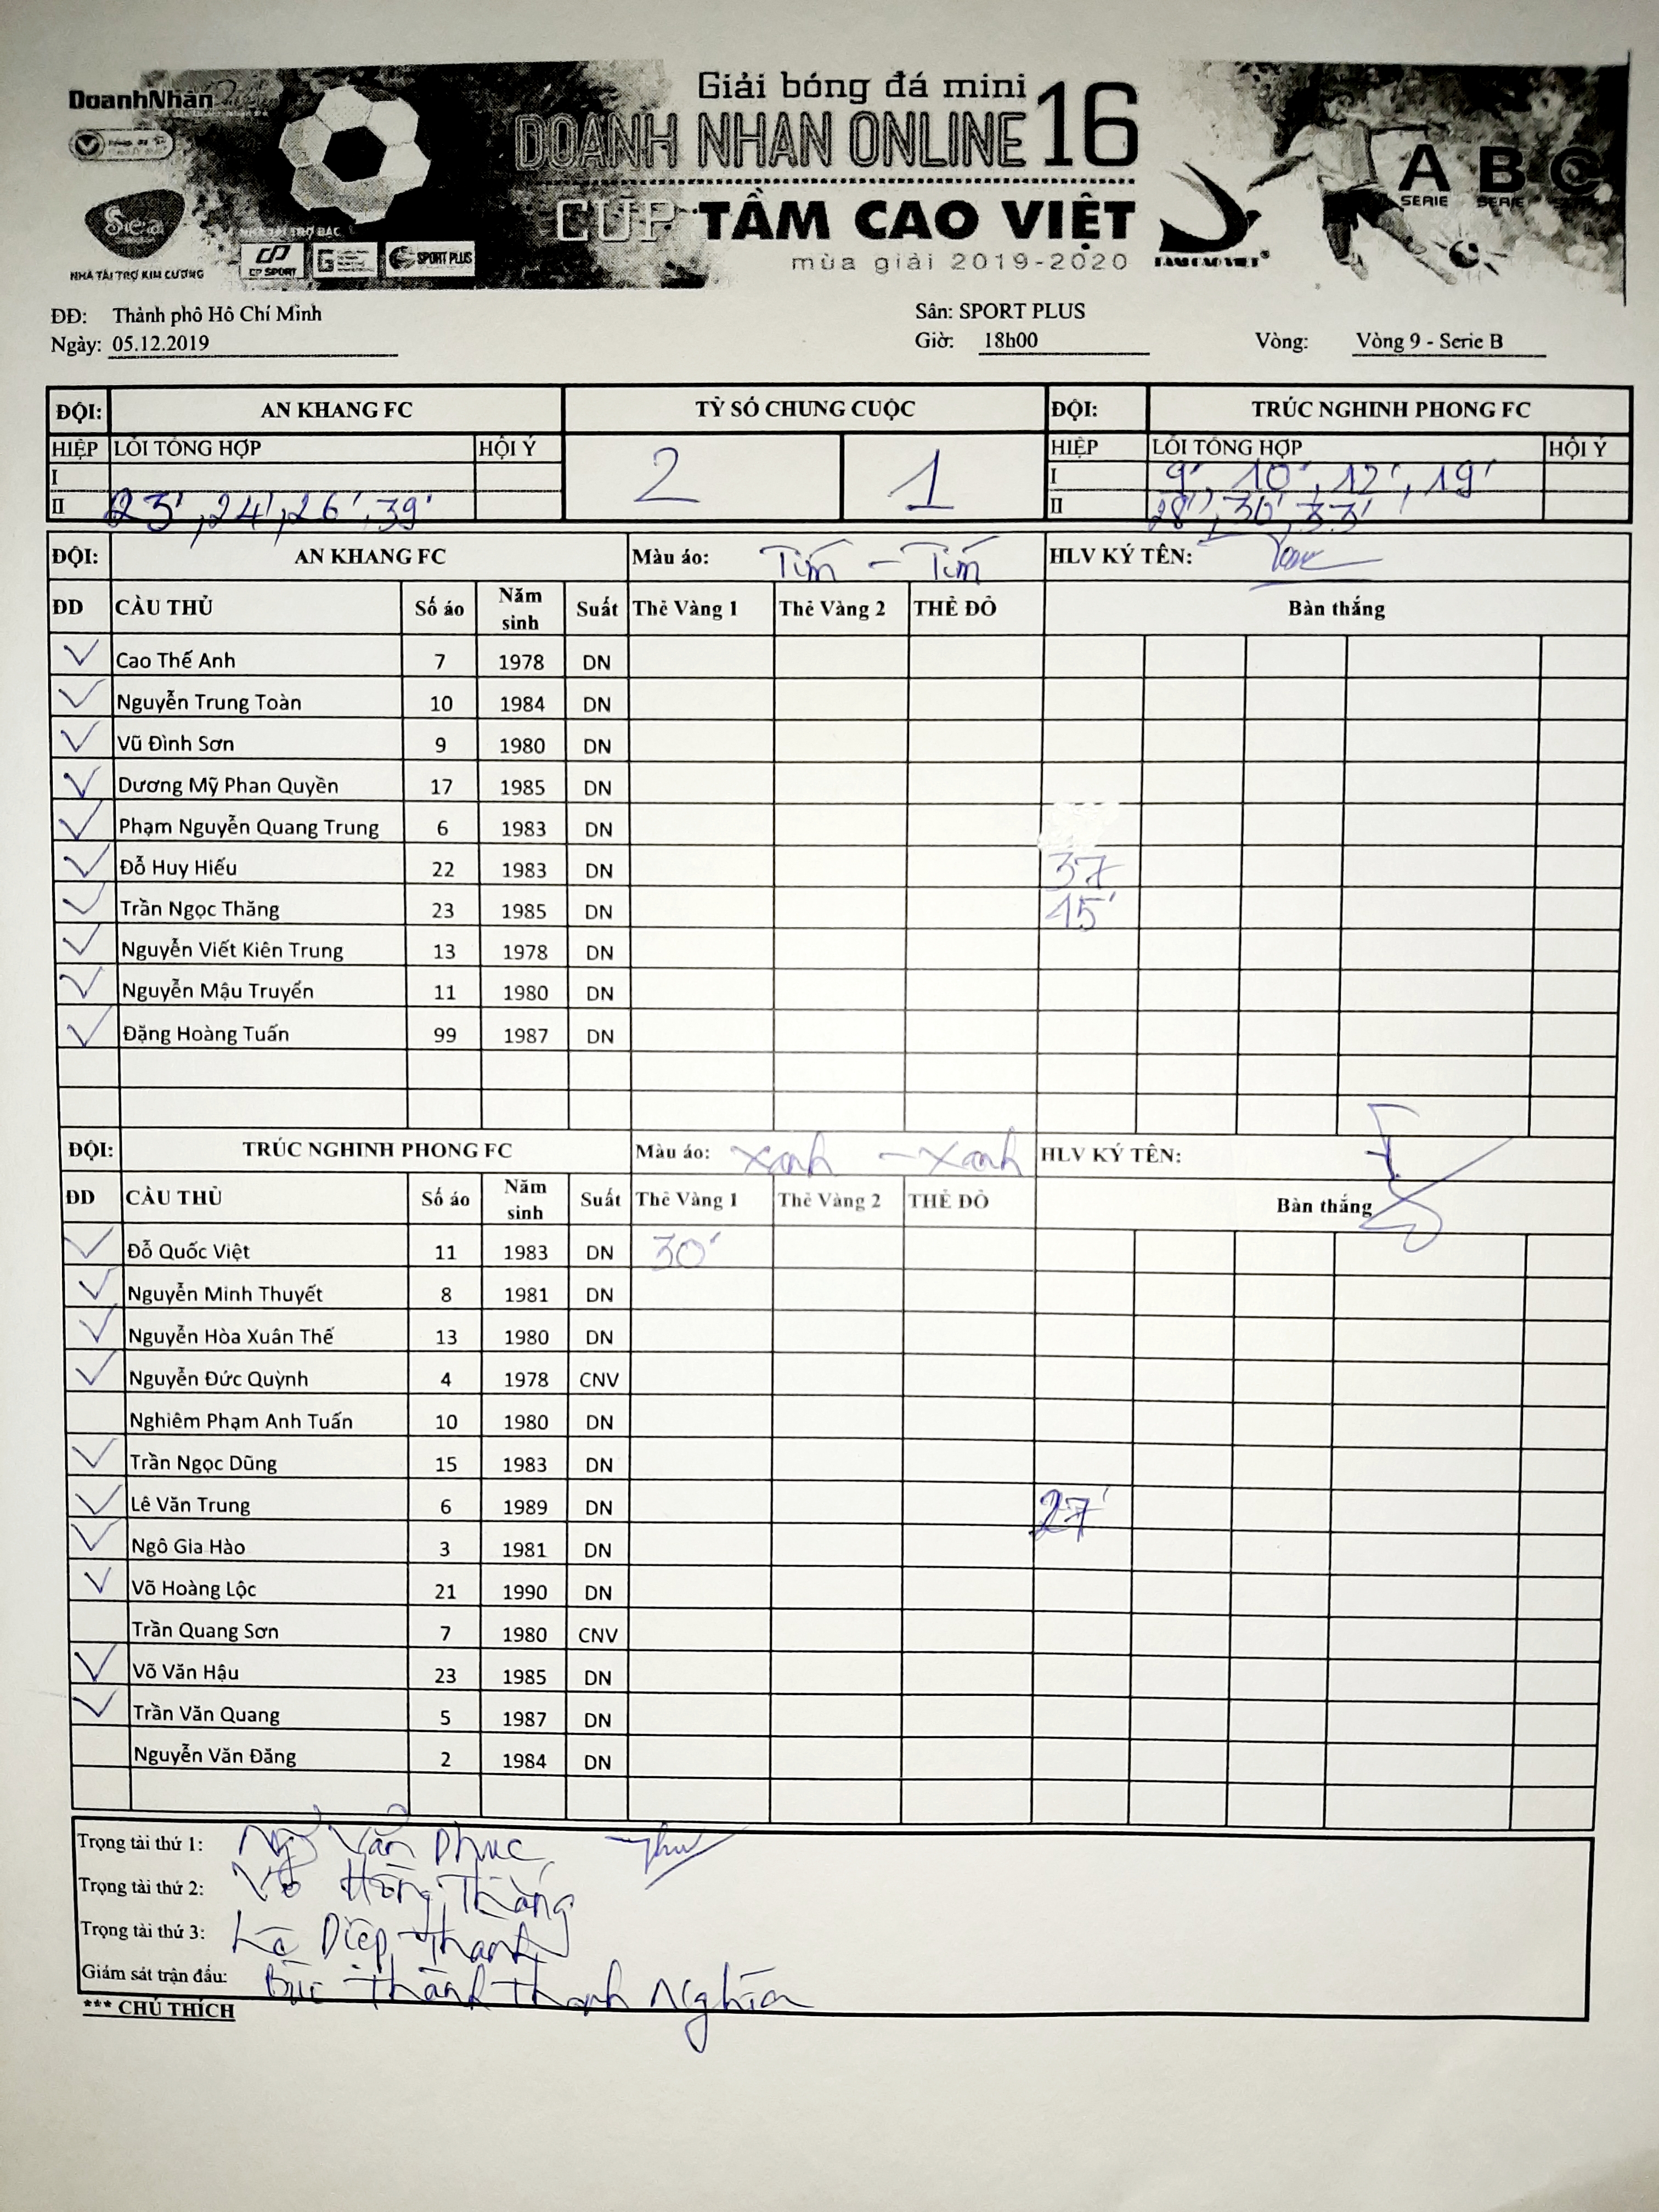 DoanhNhân
Giải bóng đá mini
DOANH NHAN ONLINE 16
CUP TẦM CAO VIỆT
mùa giải 2019-2020
A B C
SERIE SERIE
Sea
NHÀ TÀI TRỢ KIM CƯƠNG
NHÀ TÀI TRỢ BẠC
CP SPORT
G
SPORT PLUS
TAM CAO VIET
ĐĐ: Thành phô Hô Chí Minh
Sân: SPORT PLUS
Ngày: 05.12.2019
Giờ: 18h00
Vòng: Vòng 9 - Serie B
ĐỘI: AN KHANG FC TỶ SỐ CHUNG CUỘC ĐỘI: TRÚC NGHINH PHONG FC
HIỆP LỖI TỔNG HỢP HỘI Ý 2 1 HIỆP LỖI TỔNG HỢP HỘI Ý
I I 9', 10', 12', 19'
II 23', 24', 26', 39' II 28', 30', 33'
ĐỘI: AN KHANG FC Màu áo: Tím - Tím HLV KÝ TÊN:
ĐD CẦU THỦ Số áo Năm sinh Suất Thẻ Vàng 1 Thẻ Vàng 2 THẺ ĐỎ Bàn thắng
Cao Thế Anh 7 1978 DN
Nguyễn Trung Toàn 10 1984 DN
Vũ Đình Sơn 9 1980 DN
Dương Mỹ Phan Quyền 17 1985 DN
Phạm Nguyễn Quang Trung 6 1983 DN
Đỗ Huy Hiếu 22 1983 DN 37
Trần Ngọc Thăng 23 1985 DN 15'
Nguyễn Viết Kiên Trung 13 1978 DN
Nguyễn Mậu Truyến 11 1980 DN
Đặng Hoàng Tuấn 99 1987 DN
ĐỘI: TRÚC NGHINH PHONG FC Màu áo: Xanh - Xanh HLV KÝ TÊN:
ĐD CẦU THỦ Số áo Năm sinh Suất Thẻ Vàng 1 Thẻ Vàng 2 THẺ ĐỎ Bàn thắng
Đỗ Quốc Việt 11 1983 DN 30'
Nguyễn Minh Thuyết 8 1981 DN
Nguyễn Hòa Xuân Thế 13 1980 DN
Nguyễn Đức Quỳnh 4 1978 CNV
Nghiêm Phạm Anh Tuấn 10 1980 DN
Trần Ngọc Dũng 15 1983 DN
Lê Văn Trung 6 1989 DN 27'
Ngô Gia Hào 3 1981 DN
Võ Hoàng Lộc 21 1990 DN
Trần Quang Sơn 7 1980 CNV
Võ Văn Hậu 23 1985 DN
Trần Văn Quang 5 1987 DN
Nguyễn Văn Đăng 2 1984 DN
Trọng tài thứ 1: Văn Phúc
Trọng tài thứ 2: Võ Hồng Thắng
Trọng tài thứ 3: La Diệp Thanh
Giám sát trận đấu: Bùi Thành Thanh Nghĩa
*** CHÚ THÍCH